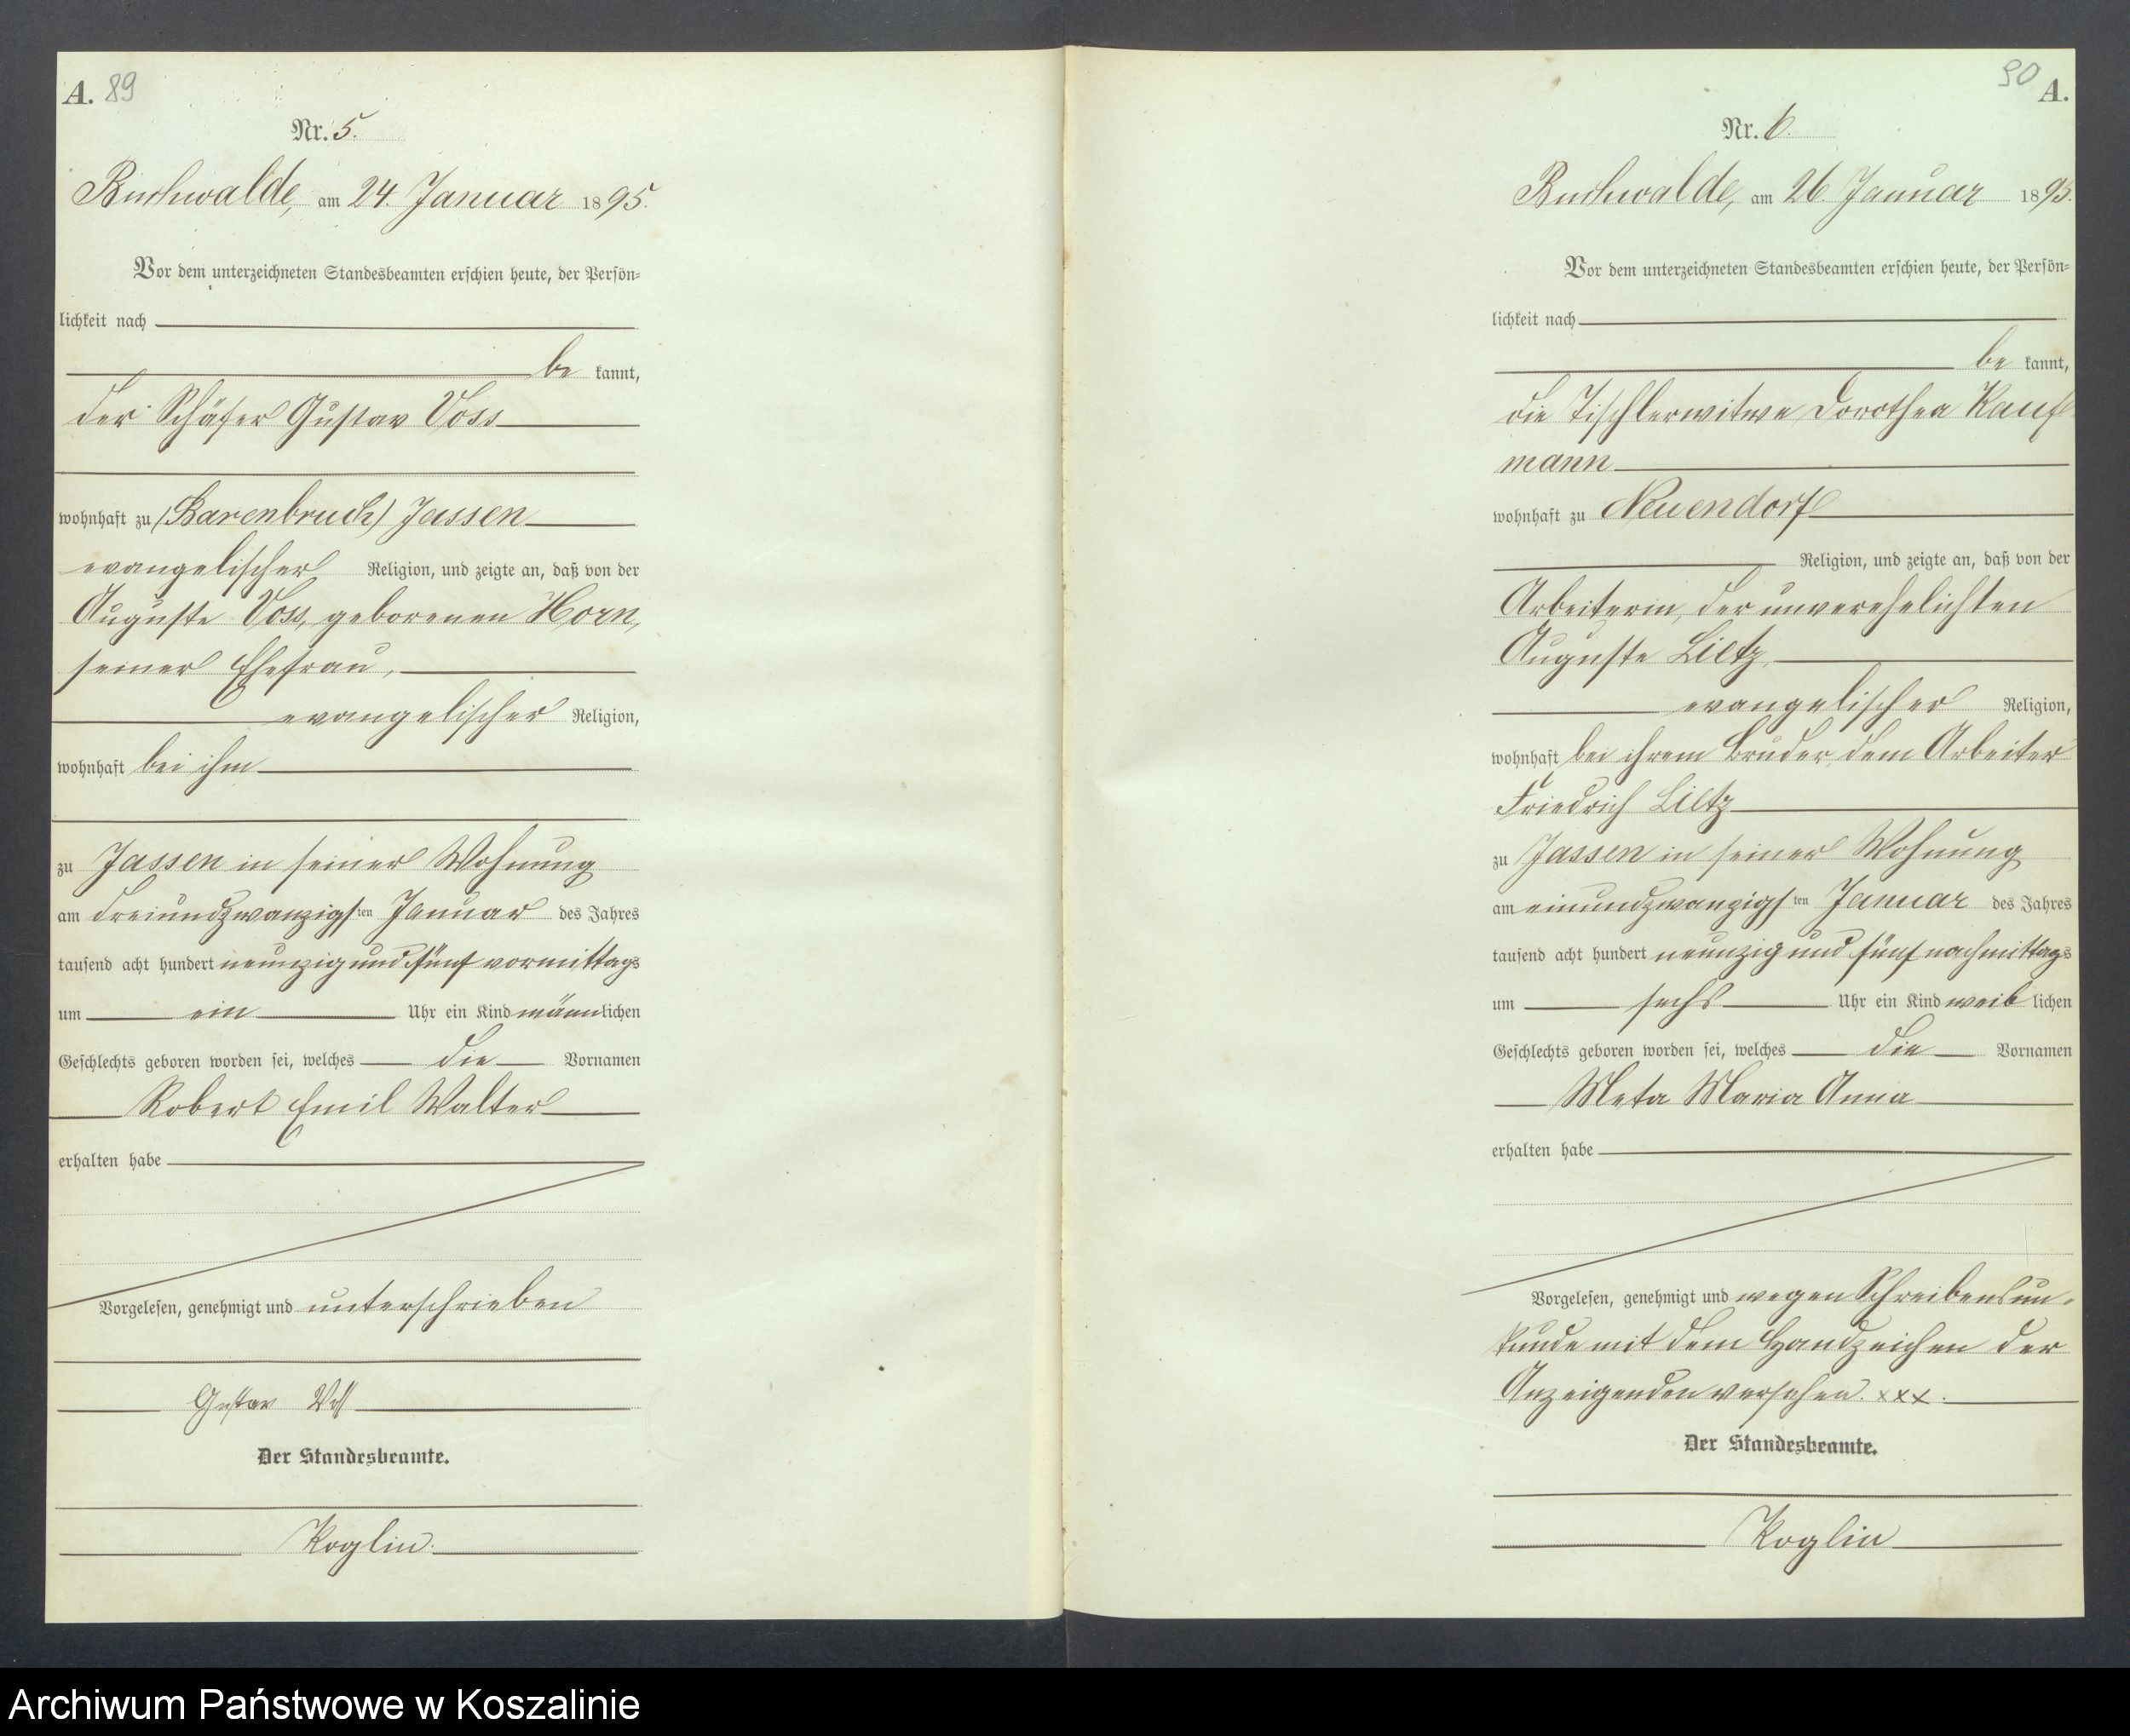 A. 89
Nr. 5.
Buchwalde, am 24. Januar 1895.
Vor dem unterzeichneten Standesbeamten erschien heute, der Persön=
lichkeit nach
be kannt,
der Schäfer Gustav Voss
wohnhaft zu (Barenbruch) Jassen
evangelischer Religion, und zeigte an, daß von der
Auguste Voss, geborenen Horn,
seiner Ehefrau,
evangelischer Religion,
wohnhaft bei ihm
zu Jassen in seiner Wohnung
am dreiundzwanzigsten Januar des Jahres
tausend acht hundert neunzig und fünf vormittags
um ein Uhr ein Kind männlichen
Geschlechts geboren worden sei, welches die Vornamen
Robert Emil Walter
erhalten habe
Vorgelesen, genehmigt und unterschrieben
Gustav Voß
Der Standesbeamte.
Koglin.
90 A.
Nr. 6.
Buchwalde, am 26. Januar 1895.
Vor dem unterzeichneten Standesbeamten erschien heute, der Persön=
lichkeit nach
be kannt,
die Tischlerwitwe Dorothea Kauf
mann
wohnhaft zu Neuendorf
Religion, und zeigte an, daß von der
Arbeiterin, der unverehelichten
Auguste Lietz,
evangelischer Religion,
wohnhaft bei ihrem Bruder, dem Arbeiter
Friedrich Lietz
zu Jassen in seiner Wohnung
am einundzwanzigsten Januar des Jahres
tausend acht hundert neunzig und fünf nachmittags
um sechs Uhr ein Kind weiblichen
Geschlechts geboren worden sei, welches die Vornamen
Meta Maria Anna
erhalten habe
Vorgelesen, genehmigt und wegen Schreibensun-
kunde mit dem Handzeichen der
Anzeigenden versehen. xxx.
Der Standesbeamte.
Koglin
Archiwum Państwowe w Koszalinie